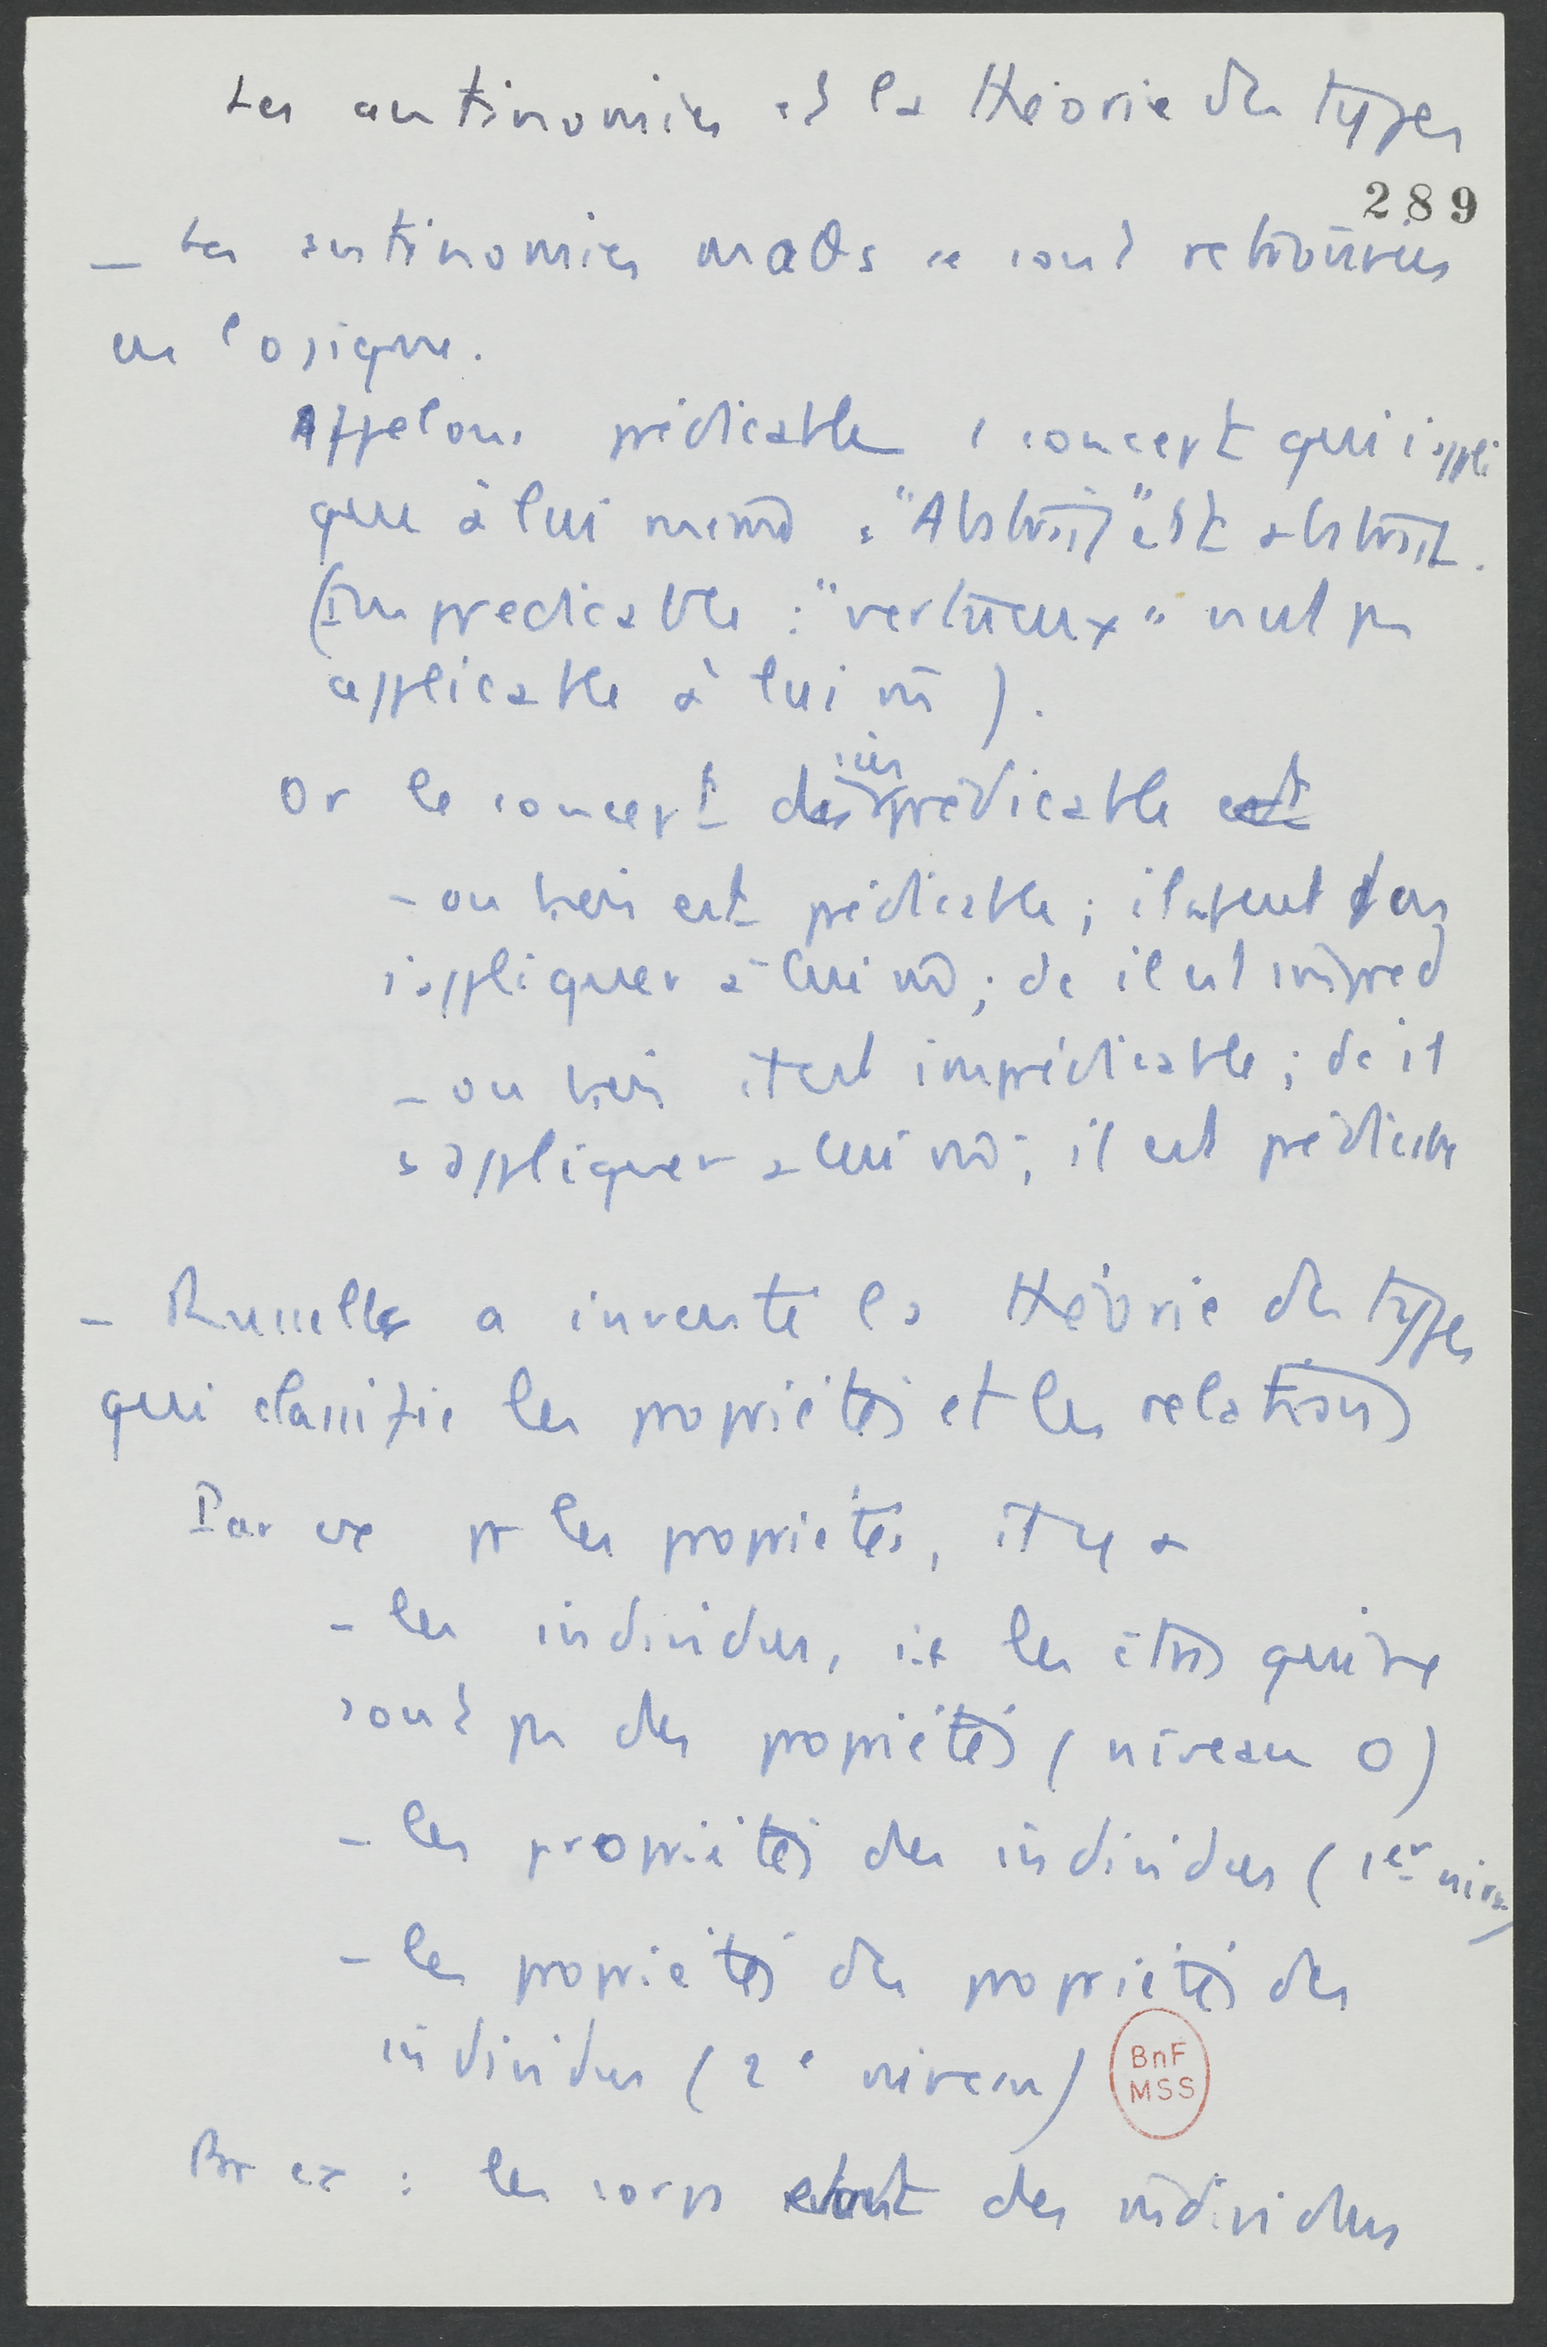 Les antinomies et la théorie des types
289
_ Les antinomies math se sont retrouvées
en logique.
Appelons prédicable 1 concept qui s'appli
que à lui même : "Abstrait" est abstrait.
(Imprédicable : "vertueux" n'est pas
applicable à lui m̂).
Or le concept d' im prédicable est
- ou bien est prédicable ; il peut dc
s'appliquer à lui m̂ ; dc il est impred
- ou bien il est imprédicable ; dc il
s'appliquer à lui m̂ ; il est prédicable
- Russell a inventé la théorie des types
qui classifie les propriétés et les relations
Par ex pr les propriétés, il y a
- les individus, i.e les êtres qui ne
sont pas des propriétés (niveau 0)
- les propriétés des individus (1er niveau)
- les propriétés des propriétés des
individus (2e niveau)
BnF
MSS
Par ex : les corps sont des individus